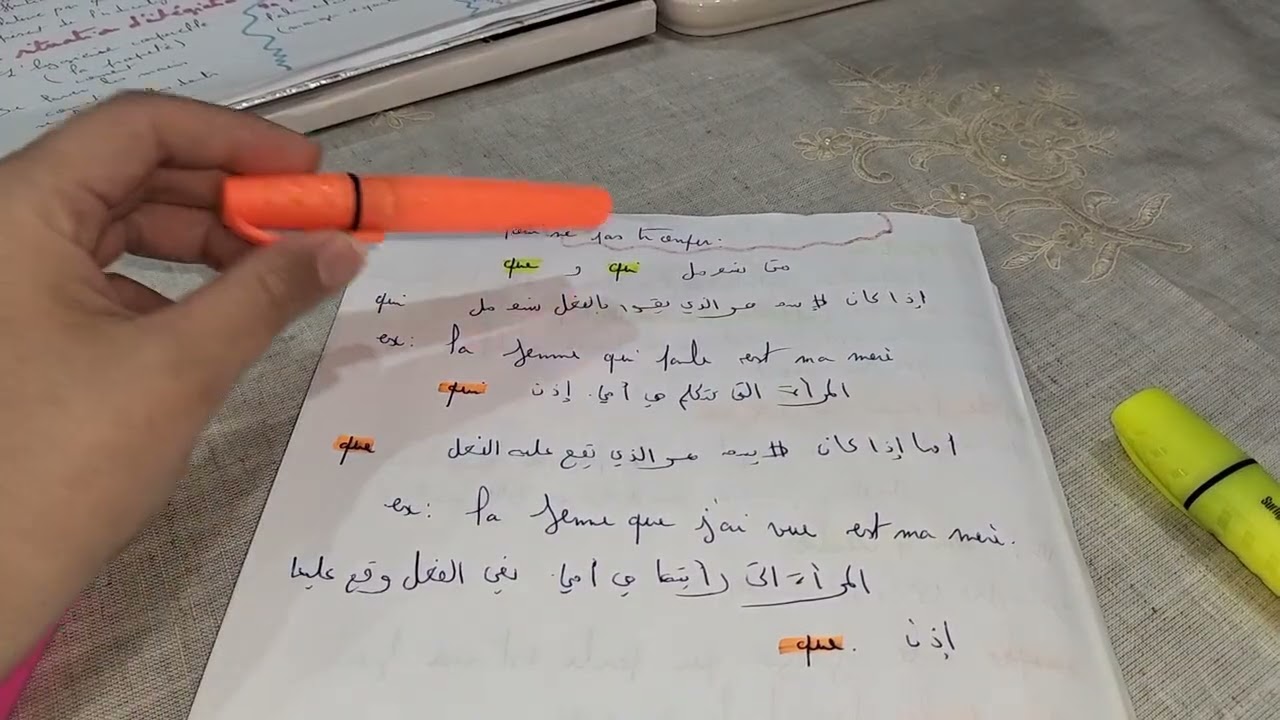 situation d'intégration
pour ne pas tromper.
متى نستعمل qui و que
إذا كان الإسم هو الذي يقوم بالفعل نستعمل qui
ex: la femme qui parle est ma mère
المرأة التي تتكلم هي أمي. إذن qui
أما إذا كان الإسم هو الذي يقع عليه الفعل que
ex: la femme que j'ai vue est ma mère.
المرأة التي رأيتها هي أمي. يعني الفعل وقع عليها
إذن que.